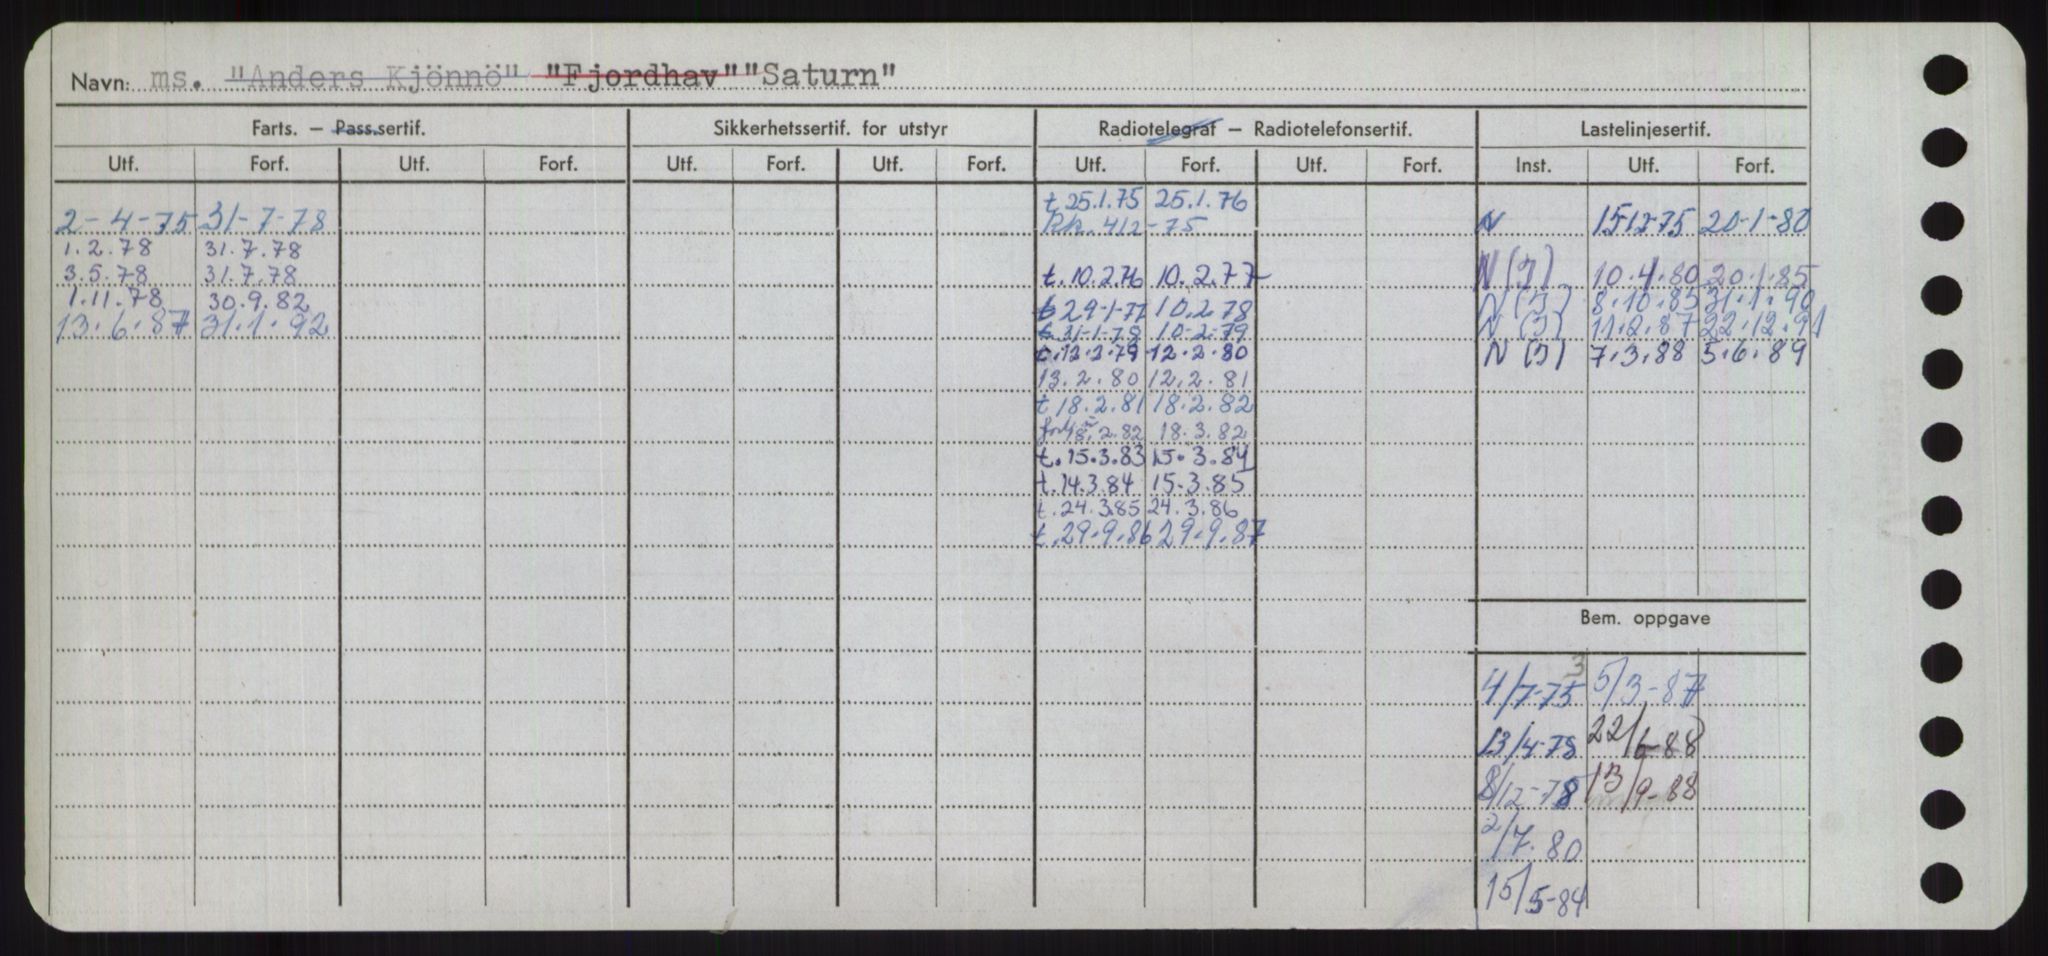 Navn: ms. "Anders Kjönnö" "Fjordhav" "Saturn"
Farts. — Pass.sertif. Sikkerhetssertif. for utstyr Radiotelegraf — Radiotelefonsertif. Lastelinjesertif.
Utf. Forf. Utf. Forf. Utf. Forf. Utf. Forf. Utf. Forf. Utf. Forf. Inst. Utf. Forf.
t 25.1.75 25.1.76
2-4-75 31-7-78 412-75 N 1512-75 20-1-80
1.2.78 31.7.78
3.5.78 31.7.78 t.10.2.76 10.2.77 N(I) 10.4.80 20.1.85
1.11.78 30.9.82 t 29-1-77 10.2.78 N(I) 8.10.85 31.1.90
13.6.87 31.1.92 t 31-1-78 10-2-79 N(I) 11.2.87 22.12.91
t.12.2.79 12.2.80 N(I) 7.3.88 5.6.89
13.2.80 12.2.81
t 18.2.81 18.2.82
18.2.82 18.3.82
t.15.3.83 15.3.84
t.14.3.84 15.3.85
t.24.3.85 24.3.86
t.29.9.86 29.9.87
Bem. oppgave
4/7-75 5/3-87
13/4-78 22/6-88
8/12-78 13/9-88
2/7.80
15/5-84